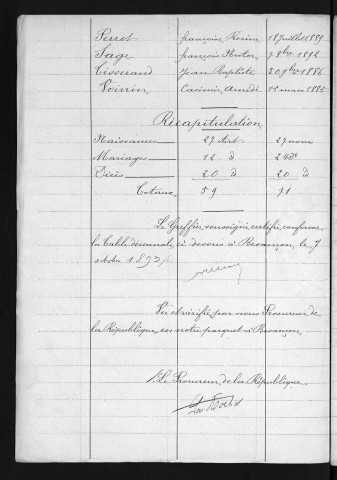 Perrot françoise Rosine 18 Juillet 1889
Sage françois Victor 7 8bre 1892
Tisserand Jean Baptiste 30 9bre 1886
Voirin Casimir Amédé 15 mars 1885
Récapitulation
Naissances 27 Art 27 noms
Mariages 12 d 24 d°
Décès 20 d 20 d
Totaux 59 71
Le Greffier soussigné certifie conforme
la Table décennale ci dessus à Besançon, le 7
octobre 1893
Vu et vérifié par nous Procureur de
la République, en notre parquet à Besançon,
Le Procureur de la République